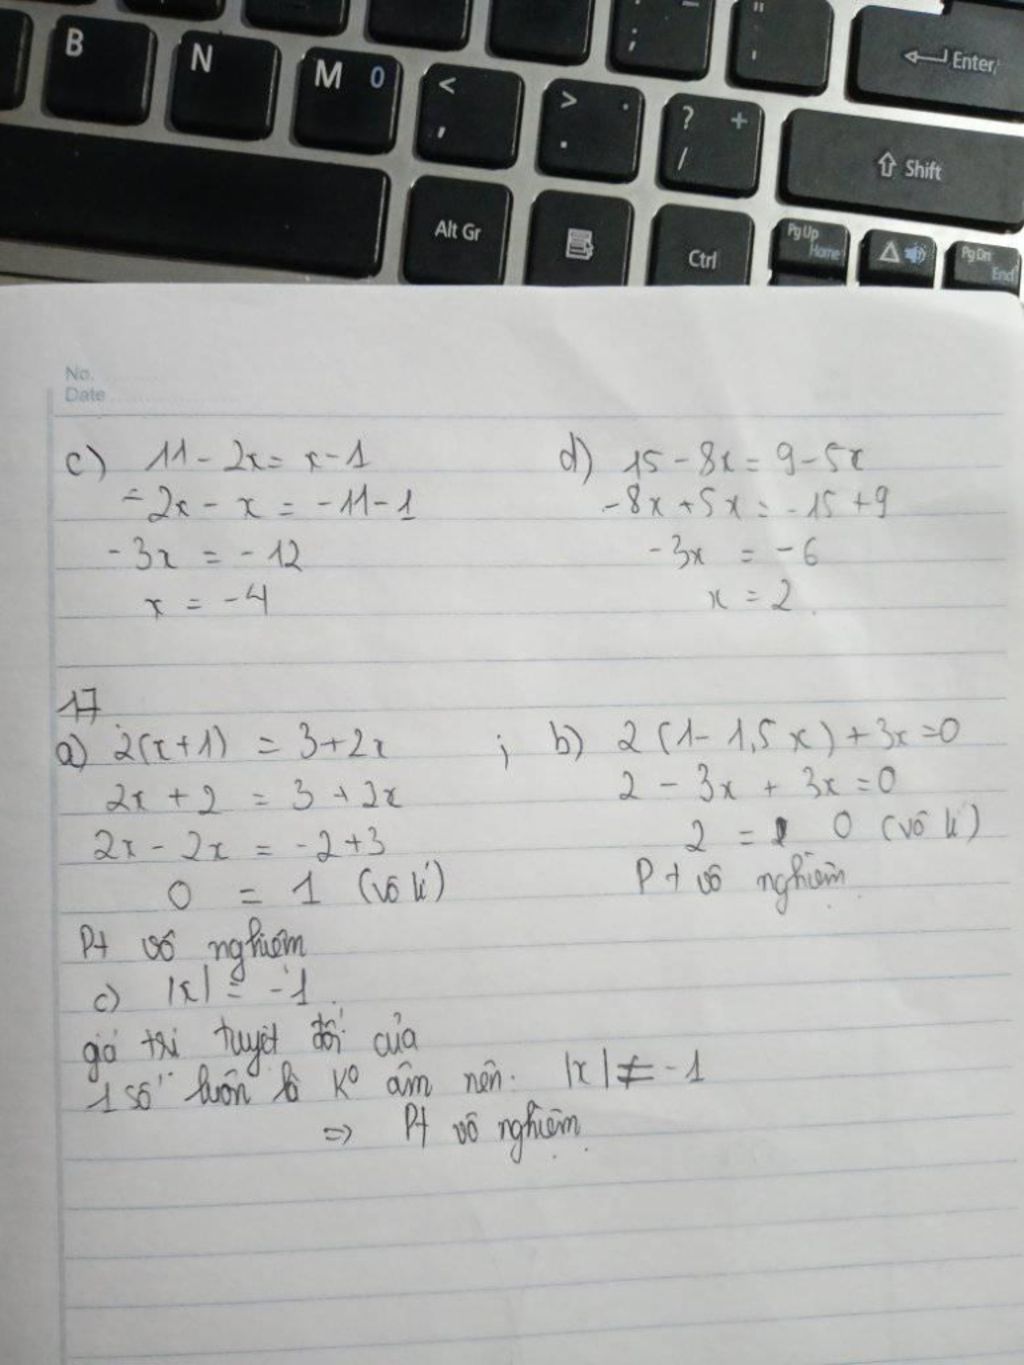 B
N
M 0
<
,
>
.
.
? +
/
;
"
'
Enter
Shift
Alt Gr
Ctrl
Pg Up
Home
Pg Dn
End
No.
Date
c) 11 - 2x = x - 1
- 2x - x = -11 - 1
-3x = -12
x = -4
d) 15 - 8x = 9 - 5x
-8x + 5x = -15 + 9
-3x = -6
x = 2
17
a) 2(x+1) = 3+2x ;
2x + 2 = 3 + 2x
2x - 2x = -2+3
0 = 1 (vô lí)
Pt vô nghiệm
b) 2 (1 - 1,5x) + 3x = 0
2 - 3x + 3x = 0
2 = 0 (vô lí)
Pt vô nghiệm
c) |x| = -1
giá trị tuyệt đối của
1 số luôn là K⁰ âm nên: |x| ≠ -1
=> Pt vô nghiệm